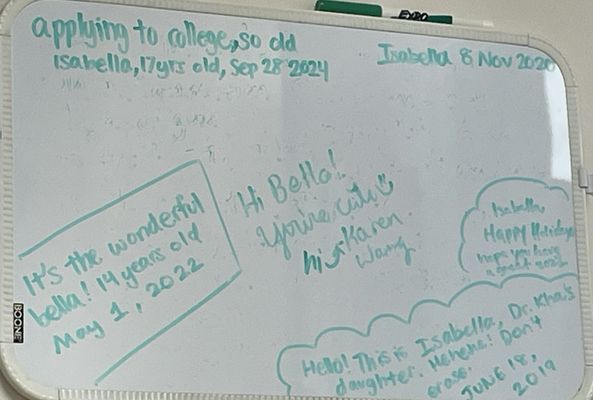 EXPO
applying to college, so old
Isabella, 17yrs old, Sep 28 2024
Isabella 8 Nov 2020
It's the wonderful
bella! 14 years old
May 1, 2022
Hi Bella!
You're cute
hi Karen
Wang
Isabella,
Happy Holidays
hope you have
a great 2021
Hello! This is Isabella, Dr. Kha's
daughter. Hehehe! Don't
erase.
JUNE 18,
2019
BOONE